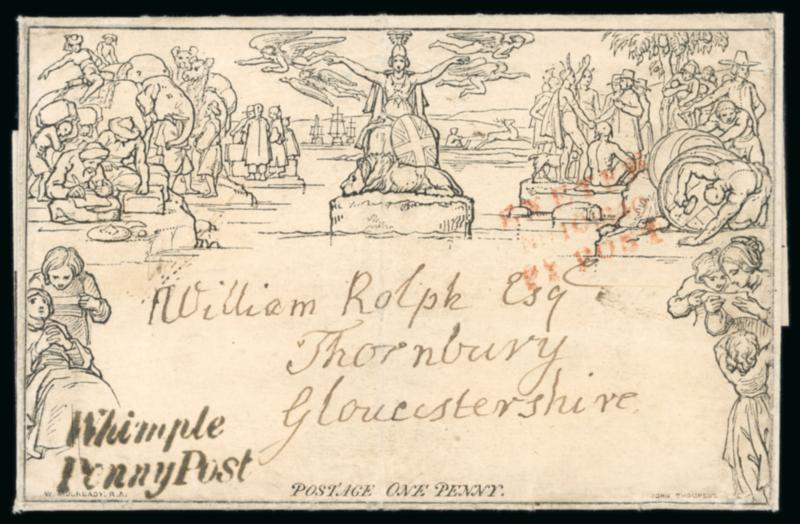 EXETER
PY POST
William Rolph Esq
Thornbury
Gloucestershire
Whimple
Penny Post
W. MULREADY. R.A.
POSTAGE ONE PENNY.
JOHN THOMPSON